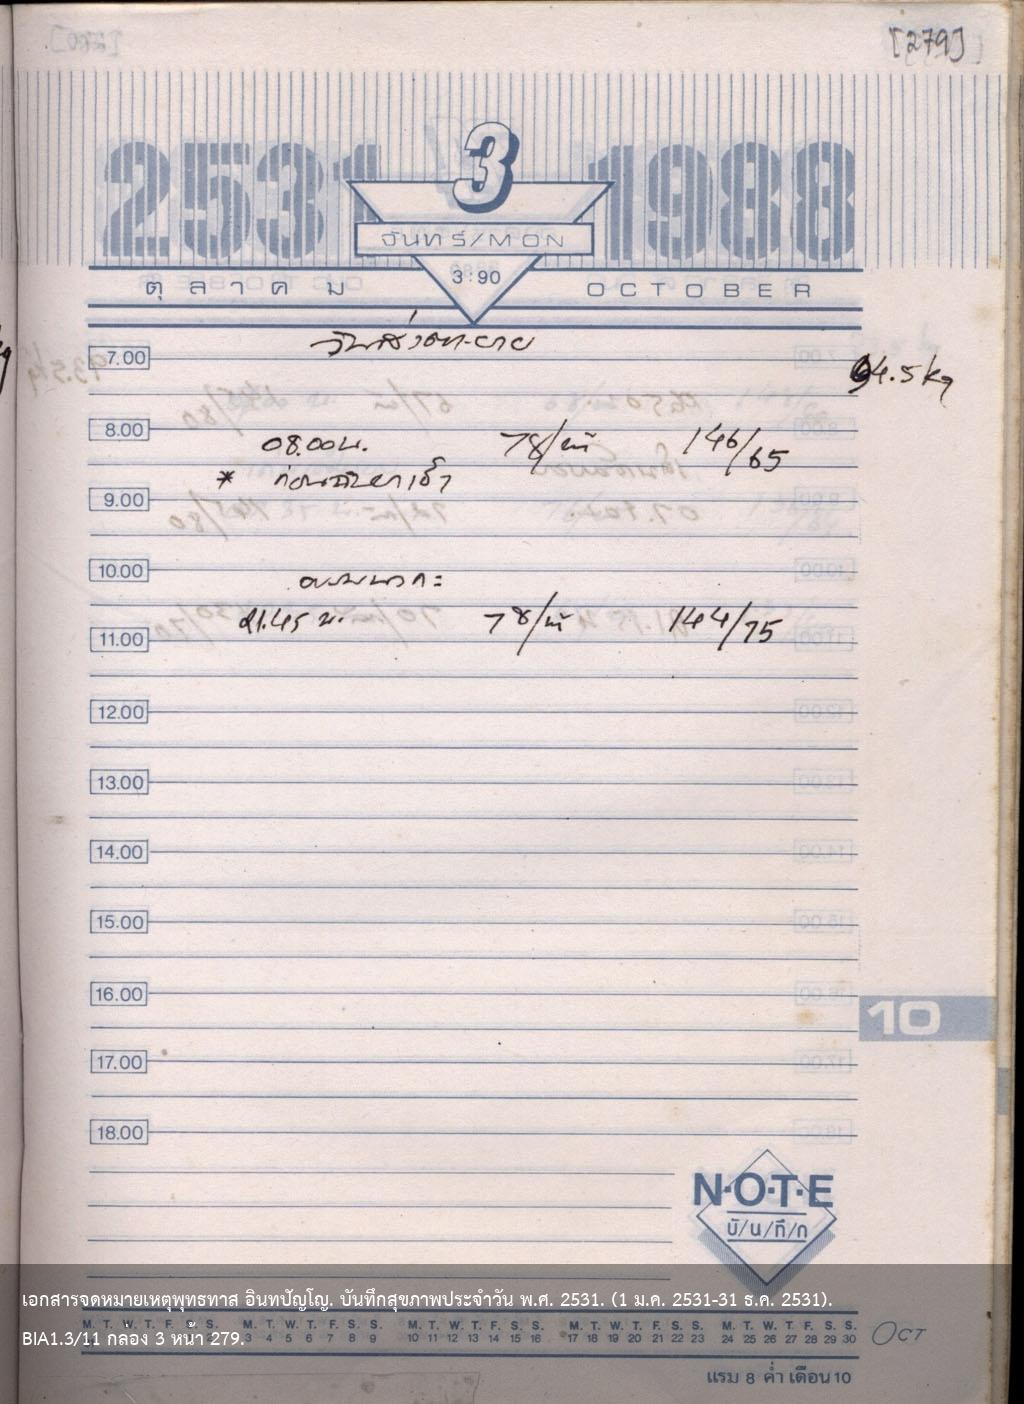 [279]
2531 3 1988
จันทร์/MON
3:90
ตุลาคม OCTOBER
7.00
94.5 kg
8.00
08.00 น. 78/นาที 146/65
* ก่อนฉันยาเช้า
9.00
10.00
อบรมนวกะ
21.45 น. 78/นาที 144/75
11.00
12.00
13.00
14.00
15.00
16.00
10
17.00
18.00
N·O·T·E
บั/น/ทึ/ก
เอกสารจดหมายเหตุพุทธทาส อินทปัญโญ. บันทึกสุขภาพประจำวัน พ.ศ. 2531. (1 ม.ค. 2531-31 ธ.ค. 2531).
M. T. W. T. F. S. S. M. T. W. T. F. S. S. M. T. W. T. F. S. S. M. T. W. T. F. S. S. M. T. W. T. F. S. S.
BIA1.3/11 กล่อง 3 หน้า 279.
3 4 5 6 7 8 9 10 11 12 13 14 15 16 17 18 19 20 21 22 23 24 25 26 27 28 29 30 OCT
แรม 8 ค่ำ เดือน 10